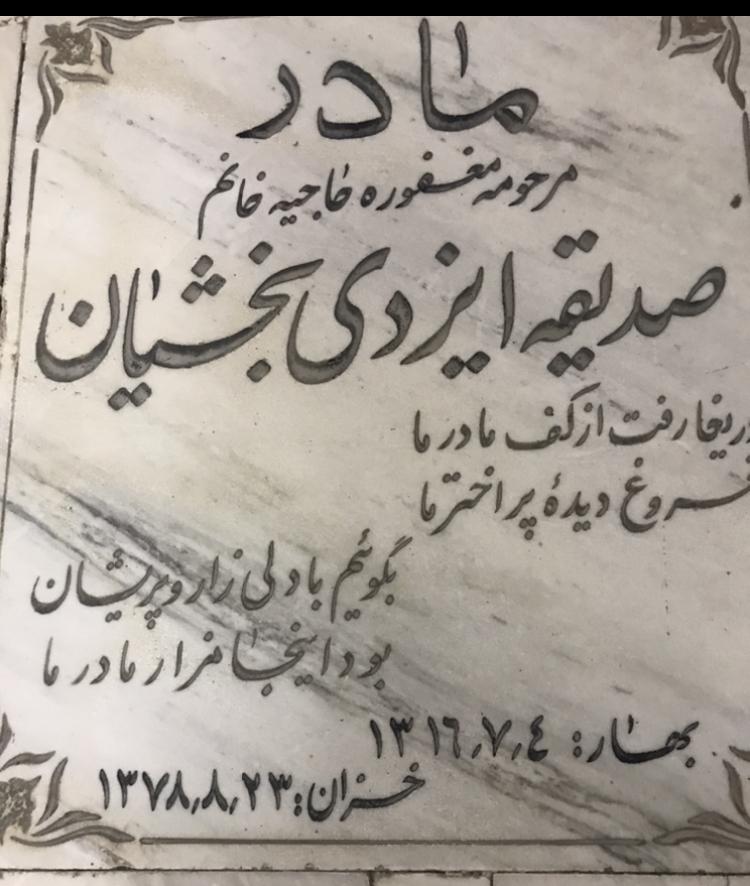 مادر
مرحومه مغفوره حاجیه خانم
صدیقه ایزدی بخشیان
دریغا رفت از کف مادر ما
فروغ دیدهٔ پر اختر ما
بگوئیم با دلی زار و پریشان
بود اینجا مزار مادر ما
بهار: ۱۳۱۶٫۷٫۴
خزان: ۱۳۷۸٫۸٫۲۳